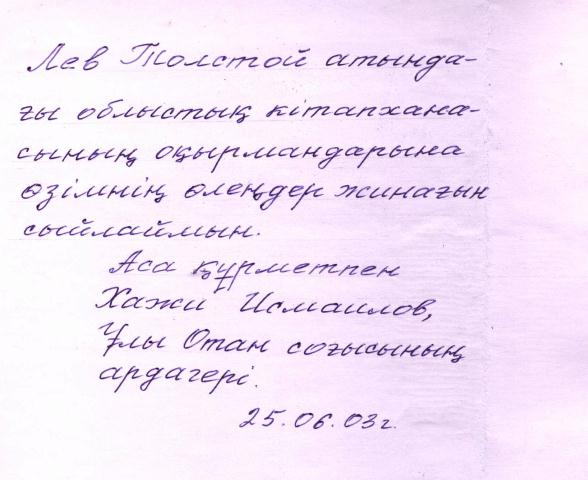 Лев Толстой атында-
ғы облыстық кітапхана-
сының оқырмандарына
өзімнің өлеңдер жинағын
сыйлаймын.
Аса құрметпен
Хажи Исмаилов,
Ұлы Отан соғысының
ардагері.
25.06.03г.